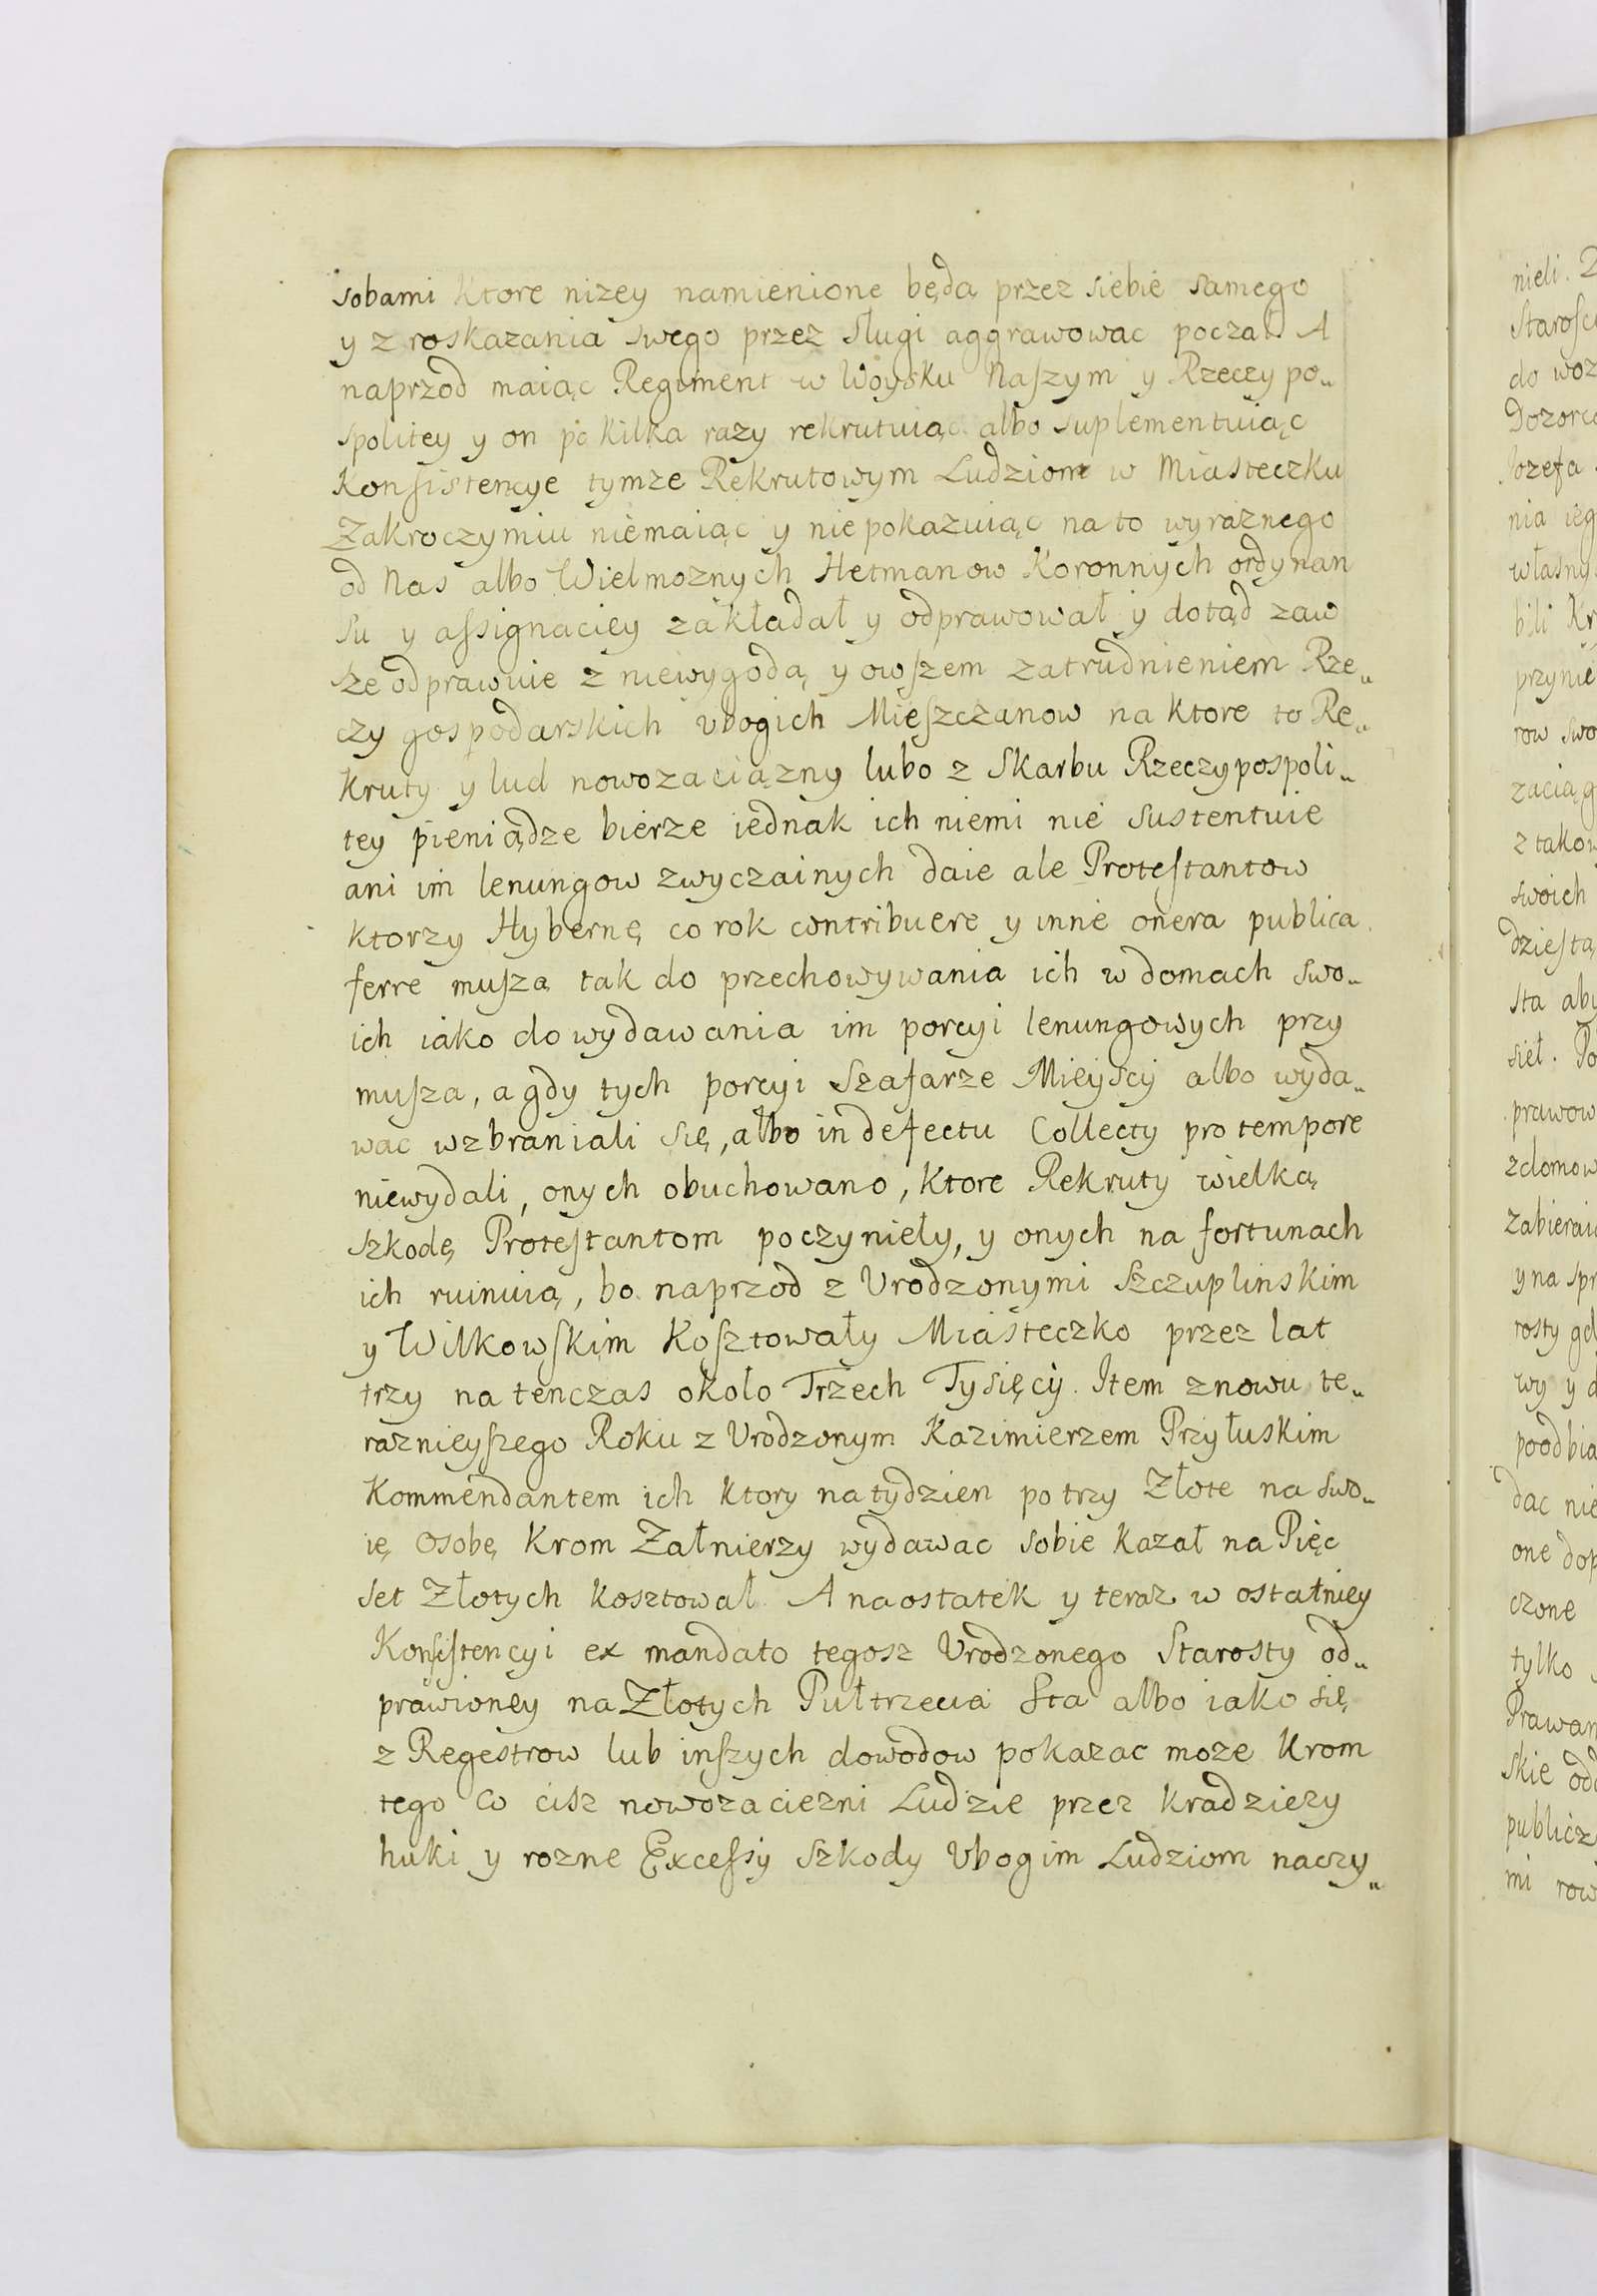 sobami ktore nizey namienione będą przez siebie samego
y z roskazania swego przez sługi aggrawowac począł. A
naprzod maiąc Regiment w Woysku Naszym y Rzeczypo„
spolitey y on po kilka razy rekrutuiąc albo suplementuiąc
Konsistencye tymze Rekrutowym Ludziom w Miasteczku
Zakroczymiu niemaiąc y niepokazuiąc na to wyraznego
od Nas albo Wielmoznych Hetmanow Koronnych ordynan
su y assignaciey zakładał y odprawował y dotąd zaw
sze odprawuie z niewygodą y owszem zatrudnieniem Rze„
czy gospodarskich vbogich Mieszczanow na ktore to Re„
kruty y lud nowozaciązny lubo z Skarbu Rzeczypospoli„
tey pieniądze bierze iednak ich niemi nie sustentuie
ani im lenungow zwyczainych daie ale Protestantow
ktorzy Hybernę co rok contribuere y inne onera publica
ferre muszą tak do przechowywania ich w domach swo„
ich iako do wydawania im porcyi lenungowych przy
musza, a gdy tych porcyi Szafarze Mieyscy albo wyda„
wac wzbraniali się, albo in defectu Collecty pro tempore
niewydali, onych obuchowano, ktore Rekruty wielką
szkodę Protestantom poczyniely, y onych na fortunach
ich ruinuią, bo naprzod z Vrodzonymi Szczuplinskim
y Wilkowskim kosztowały Miasteczko przez lat
trzy na tenczas około Trzech Tysięcy. Item znowu te„
raznieyszego Roku z Vrodzonym Kazimierzem Przyłuskim
Kommendantem ich ktory na tydzien po trzy Złote na swo„
ię osobę krom Załnierzy wydawac sobie kazał na Pięc
set Złotych kosztował. A naostatek y teraz w ostatniey
Konsistencyi ex mandato tegosz Vrodzonego Starosty od„
prawioney na Złotych Pułtrzecia sta albo iako się
z Regestrow lub inszych dowodow pokazac moze krom
tego co cisz nowozaciezni Ludzie przez kradziezy
huki y rozne Excessy szkody Vbogim Ludziom naczy„